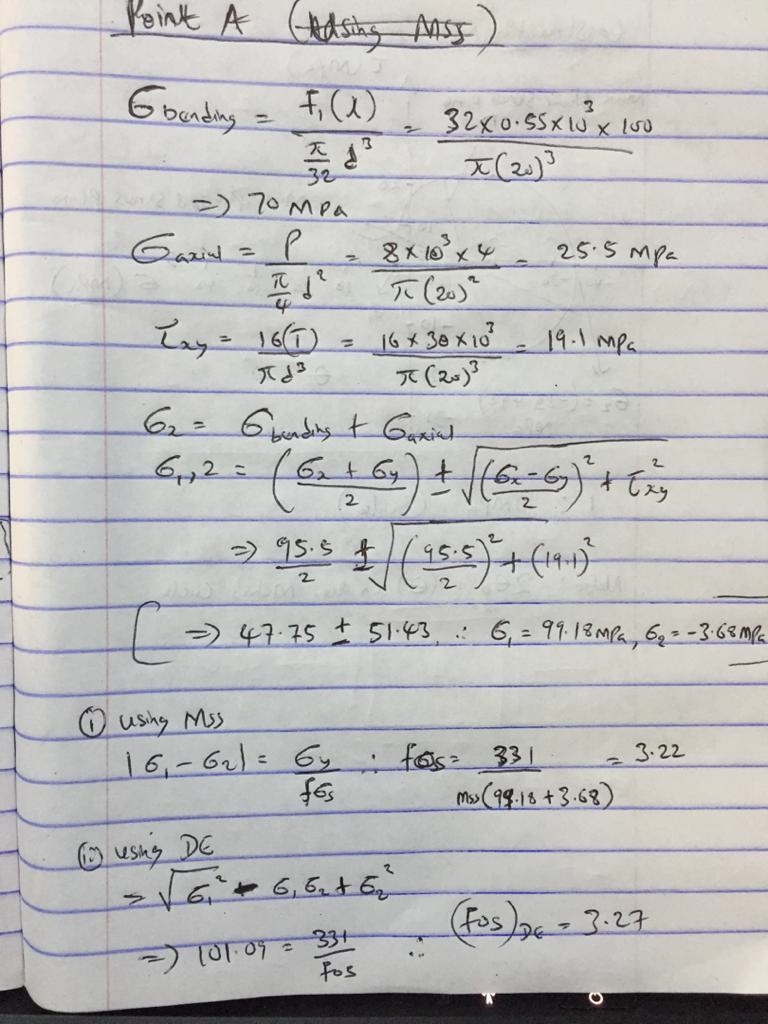 Point A (Using MSS)
σbending = F₁(l) / (π/32 d³) = 32×0.55×10³×100 / π(20)³
=> 70 MPa
σaxial = P / (π/4 d²) = 8×10³×4 / π(20)² = 25.5 MPa
τxy = 16(T) / πd³ = 16×30×10³ / π(20)³ = 19.1 MPa
σ2 = σbending + σaxial
σ1,2 = ((σx + σy)/2) ± √(((σx - σy)/2)² + τxy²)
=> 95.5/2 ± √((95.5/2)² + (19.1)²)
[ => 47.75 ± 51.43, ∴ σ₁ = 99.18 MPa, σ₂ = -3.68 MPa
(i) using MSS
|σ₁ - σ₂| = σy/fos ∴ fos = 331 / MSS(99.18 + 3.68) = 3.22
(ii) using DE
=> √(σ₁² - σ₁σ₂ + σ₂²)
=> 101.09 = 331/FoS ∴ (FoS)DE = 3.27